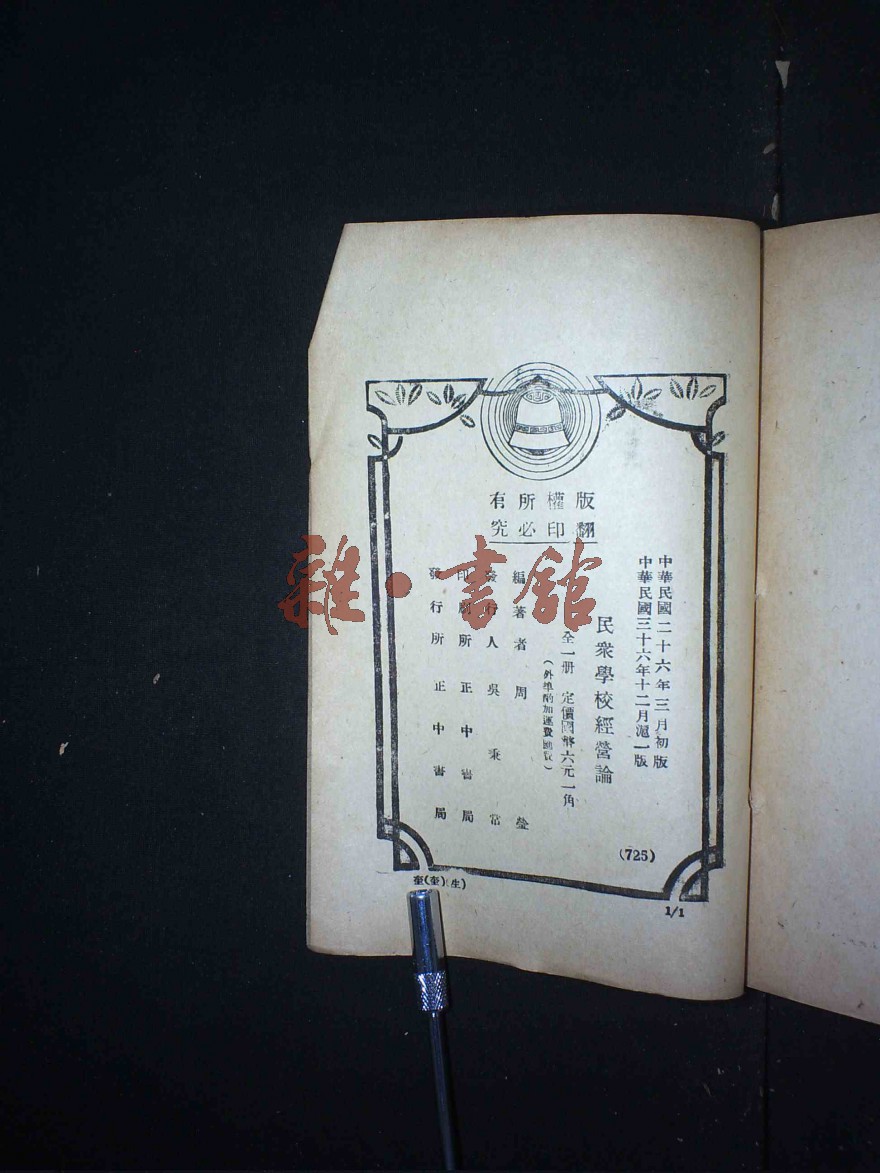 版權所有
翻印必究
中華民國二十六年三月初版
中華民國三十六年十二月滬一版
民衆學校經營論
全一册 定價國幣六元一角
(外埠酌加運費匯費)
編著者 周 瑩
發行人 吳秉常
印刷所 正中書局
發行所 正中書局
(725)
1/1
雜·書館